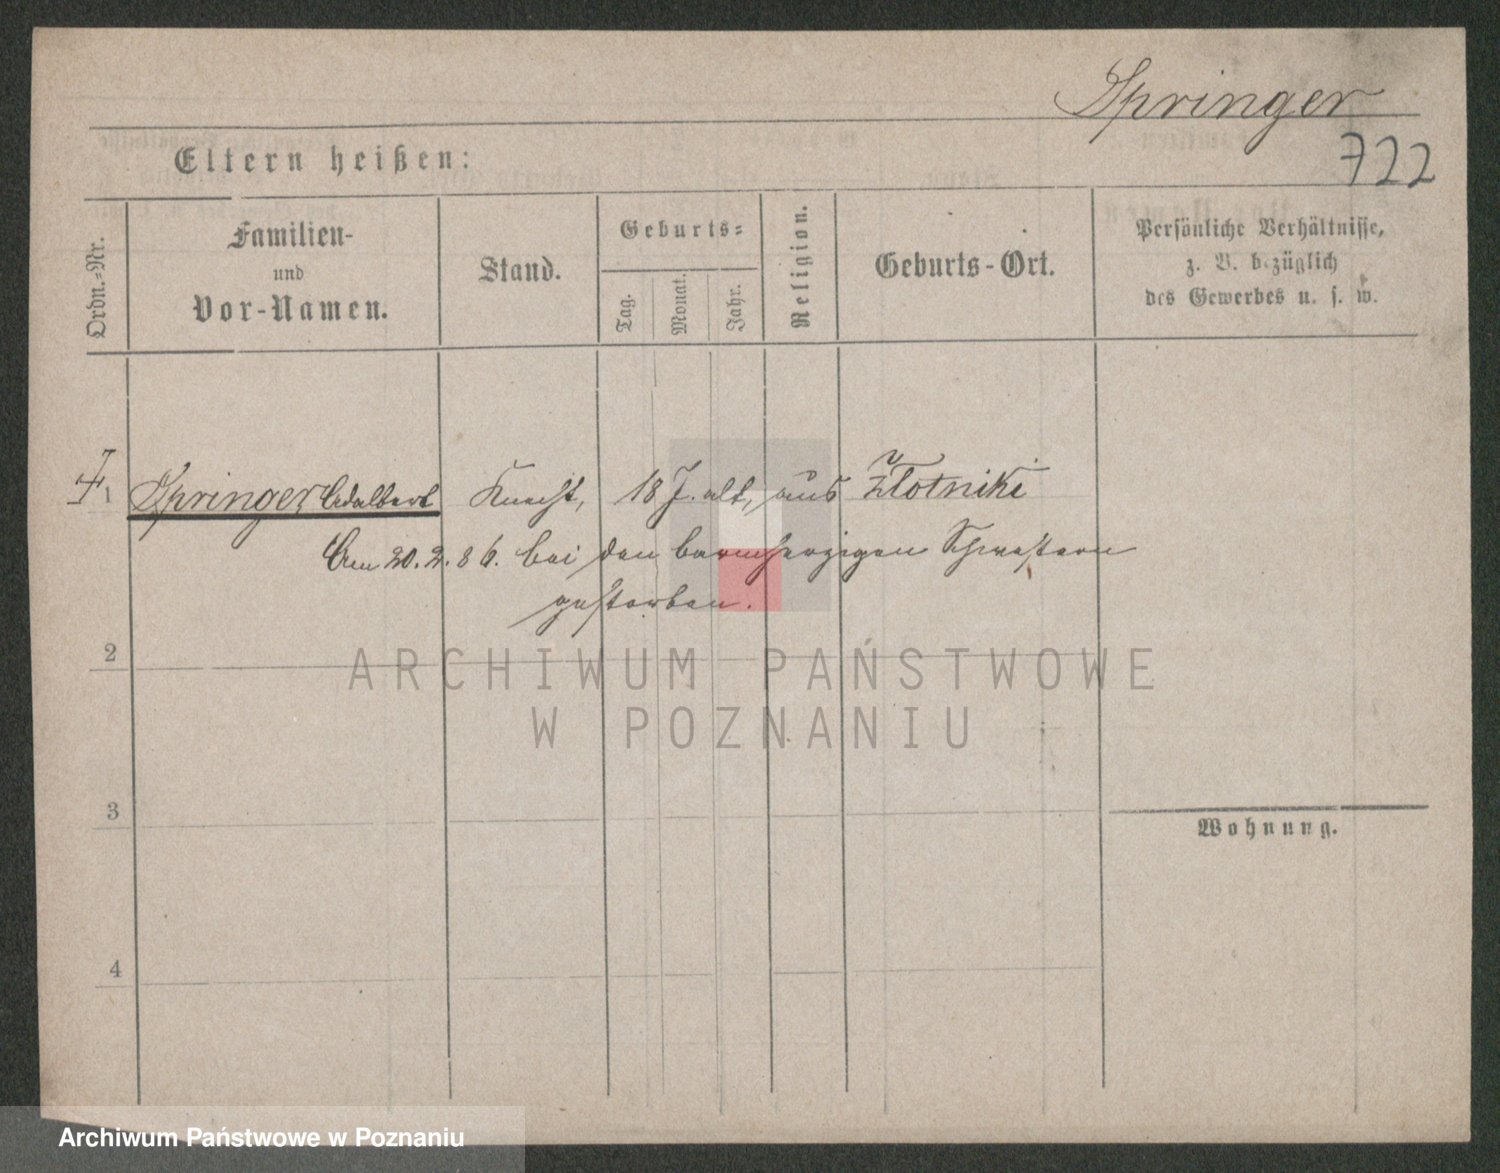 Springer
722
Eltern heißen:
Ordn.-Nr.
Familien-
und
Vor-Namen.
Stand.
Geburts-
Tag.
Monat.
Jahr.
Religion.
Geburts-Ort.
Persönliche Verhältnisse,
z. B. bezüglich
des Gewerbes u. s. w.
1 Springer Adalbert Knecht, 18 J. alt, aus Złotniki
Am 20.2.86. bei den barmherzigen Schwestern
gestorben.
2
ARCHIWUM PAŃSTWOWE
W POZNANIU
3
Wohnung.
4
Archiwum Państwowe w Poznaniu